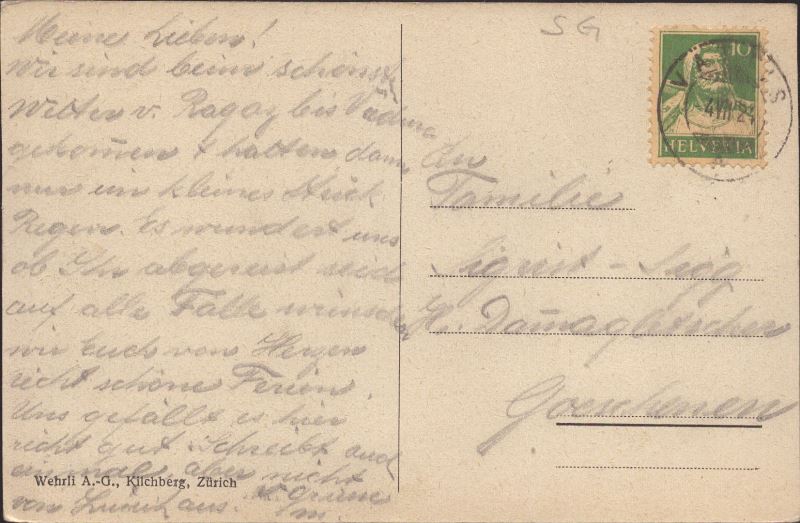 Meine Lieben!
Wir sind beim schönst.
Wetter v. Ragaz bis
gekom̅en & hatten dann
nur ein kleines Stück
Regen. Es wundert uns
ob Ihr abgereist seid
auf alle Fälle wünschen
wir Euch von Herzen
recht schöne Ferien.
Uns gefällt es hier
recht gut. Schreibt auch
einmal, aber nicht
von Zürich aus. Grüsse
m.
Wehrli A.-G., Kilchberg, Zürich
SG
10
HELVETIA
VAD
4 VII 24
An
Familie
Sigrist - Sigg
H. Dam̅agletscher
Goeschenen